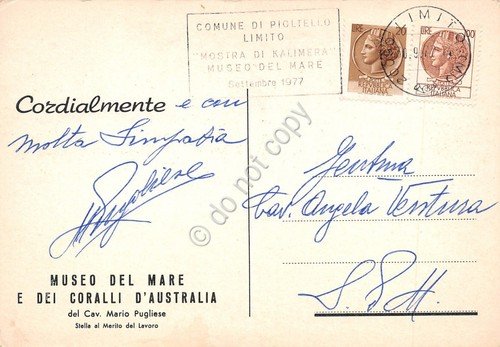 COMUNE DI PIGLIELLO
LIMITO
"MOSTRA DI KALIMERA"
MUSEO DEL MARE
Settembre 1977
LIRE 20
LIMITO
LIRE
REPUBBLICA
ITALIANA
Cordialmente e con
molta simpatia
MPugliese
Gentma
Cav. Angela Ventura
S.P.M.
MUSEO DEL MARE
E DEI CORALLI D'AUSTRALIA
del Cav. Mario Pugliese
Stella al Merito del Lavoro
do not copy